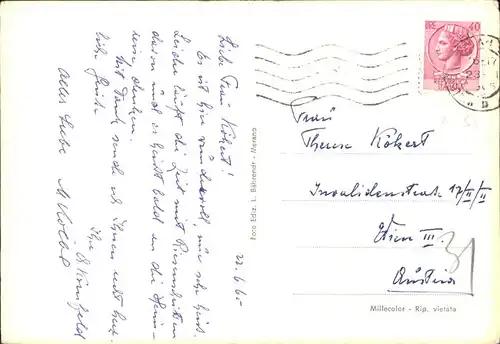 22. 6. 65
Liebe Frau Kökert!
Es ist hier wundervoll, nur sehr heiß.
Leider läuft die Zeit mit Riesenschritten
davon und es heißt bald an die Heim-
reise denken.
Mit Dank sende ich Ihnen recht herz-
liche Grüße
Ihre
Alles Liebe
Foto Ediz. L. Bährendt - Merano
40
Frau
Therese Kökert
Invalidenstraße 17/II/11
Wien III.
Austria
Millecolor - Rip. vietata